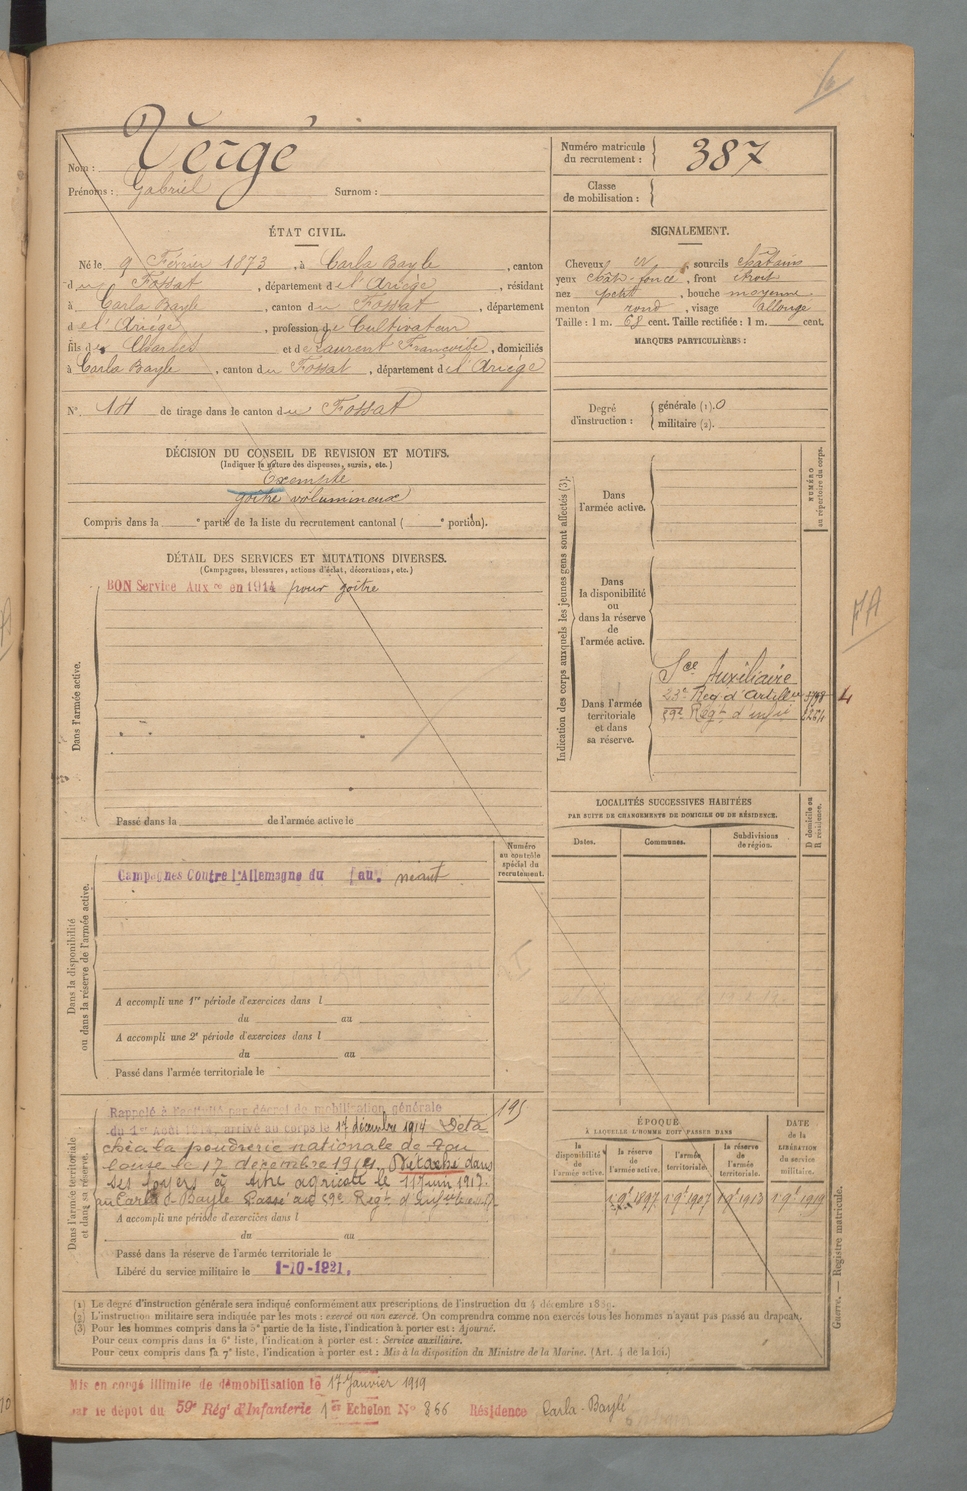 Nom : Vergé
Prénoms : Gabriel Surnom :
Numéro matricule du recrutement : 387
Classe de mobilisation :
ÉTAT CIVIL.
Né le 9 Février 1873, à Carla Bayle, canton
du Fossat, département de l'Ariège, résidant
à Carla Bayle, canton du Fossat, département
de l'Ariège, profession de Cultivateur
fils de Charles et de Laurent Françoise, domiciliés
à Carla Bayle, canton du Fossat, département de l'Ariège
N° 14 de tirage dans le canton du Fossat
SIGNALEMENT.
Cheveux N, sourcils châtains
yeux chât. foncé, front étroit
nez petit, bouche moyenne
menton rond, visage allongé
Taille : 1 m. 68 cent. Taille rectifiée : 1 m. cent.
MARQUES PARTICULIÈRES :
Degré d'instruction : générale (1). 0
militaire (2).
DÉCISION DU CONSEIL DE REVISION ET MOTIFS.
(Indiquer la nature des dispenses, sursis, etc.)
Exempté
goître volumineux
Compris dans la e partie de la liste du recrutement cantonal ( e portion).
DÉTAIL DES SERVICES ET MUTATIONS DIVERSES.
(Campagnes, blessures, actions d'éclat, décorations, etc.)
Dans l'armée active.
BON Service Auxre en 1914 pour goître
Passé dans la de l'armée active le
Indication des corps auxquels les jeunes gens sont affectés (3).
NUMÉRO au répertoire du corps.
Dans l'armée active.
Dans la disponibilité ou dans la réserve de l'armée active.
Dans l'armée territoriale et dans sa réserve.
Sce Auxiliaire
23e Reg d'Artillerie
59e Régt d'infie
FA
LOCALITÉS SUCCESSIVES HABITÉES
PAR SUITE DE CHANGEMENTS DE DOMICILE OU DE RÉSIDENCE.
Dates. Communes. Subdivisions de région. D domicile ou R résidence.
Dans la disponibilité ou dans la réserve de l'armée active.
Numéro au contrôle spécial du recrutement.
Campagnes Contre l'Allemagne du au. néant
A accompli une 1re période d'exercices dans l
du au
A accompli une 2e période d'exercices dans l
du au
Passé dans l'armée territoriale le
Dans l'armée territoriale et dans sa réserve.
195
Rappelé à l'activité par décret de mobilisation générale
du 1er Août 1914, arrivé au corps le 17 décembre 1914 Déta
ché à la poudrerie nationale de Tou
louse le 17 décembre 1914. Détaché dans
ses foyers à titre agricole le 11 juin 1917.
au Carla-Bayle Passé au 59e Régt d'infie
A accompli une période d'exercices dans l
du au
Passé dans la réserve de l'armée territoriale le
Libéré du service militaire le 1-10-1921.
ÉPOQUE
À LAQUELLE L'HOMME DOIT PASSER DANS
la disponibilité de l'armée active. la réserve de l'armée active. l'armée territoriale. la réserve de l'armée territoriale.
DATE de la LIBÉRATION du service militaire.
1897 1907 1913 1919
(1) Le degré d'instruction générale sera indiqué conformément aux prescriptions de l'instruction du 4 décembre 1889.
(2) L'instruction militaire sera indiquée par les mots : exercé ou non exercé. On comprendra comme non exercés tous les hommes n'ayant pas passé au drapeau.
(3) Pour les hommes compris dans la 5e partie de la liste, l'indication à porter est : Ajourné.
Pour ceux compris dans la 6e liste, l'indication à porter est : Service auxiliaire.
Pour ceux compris dans la 7e liste, l'indication à porter est : Mis à la disposition du Ministre de la Marine. (Art. 4 de la loi.)
Guerre. — Registre matricule.
Mis en congé illimité de démobilisation le 17 Janvier 1919
par le dépôt du 59e Régt d'Infanterie 1er Echelon No 866 Résidence Carla-Bayle